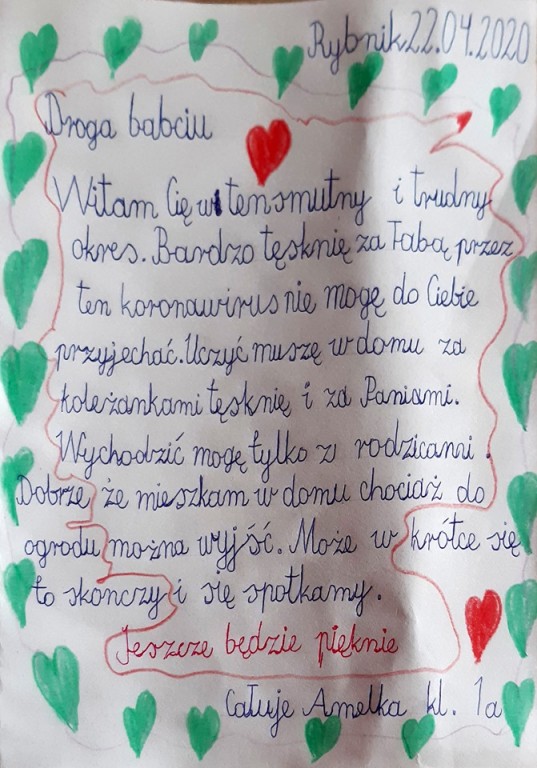 Rybnik 22.04.2020
Droga babciu
Witam Cię w ten smutny i trudny
okres. Bardzo tęsknię za Tobą, przez
ten koronawirus nie mogę do Ciebie
przyjechać. Uczyć muszę w domu za
koleżankami tęsknię i za Paniami.
Wychodzić mogę tylko z rodzicami.
Dobrze że mieszkam w domu chociaż do
ogrodu można wyjść. Może w krótce się
to skończy i się spotkamy.
Jeszcze będzie pięknie
Całuje Amelka kl. 1a